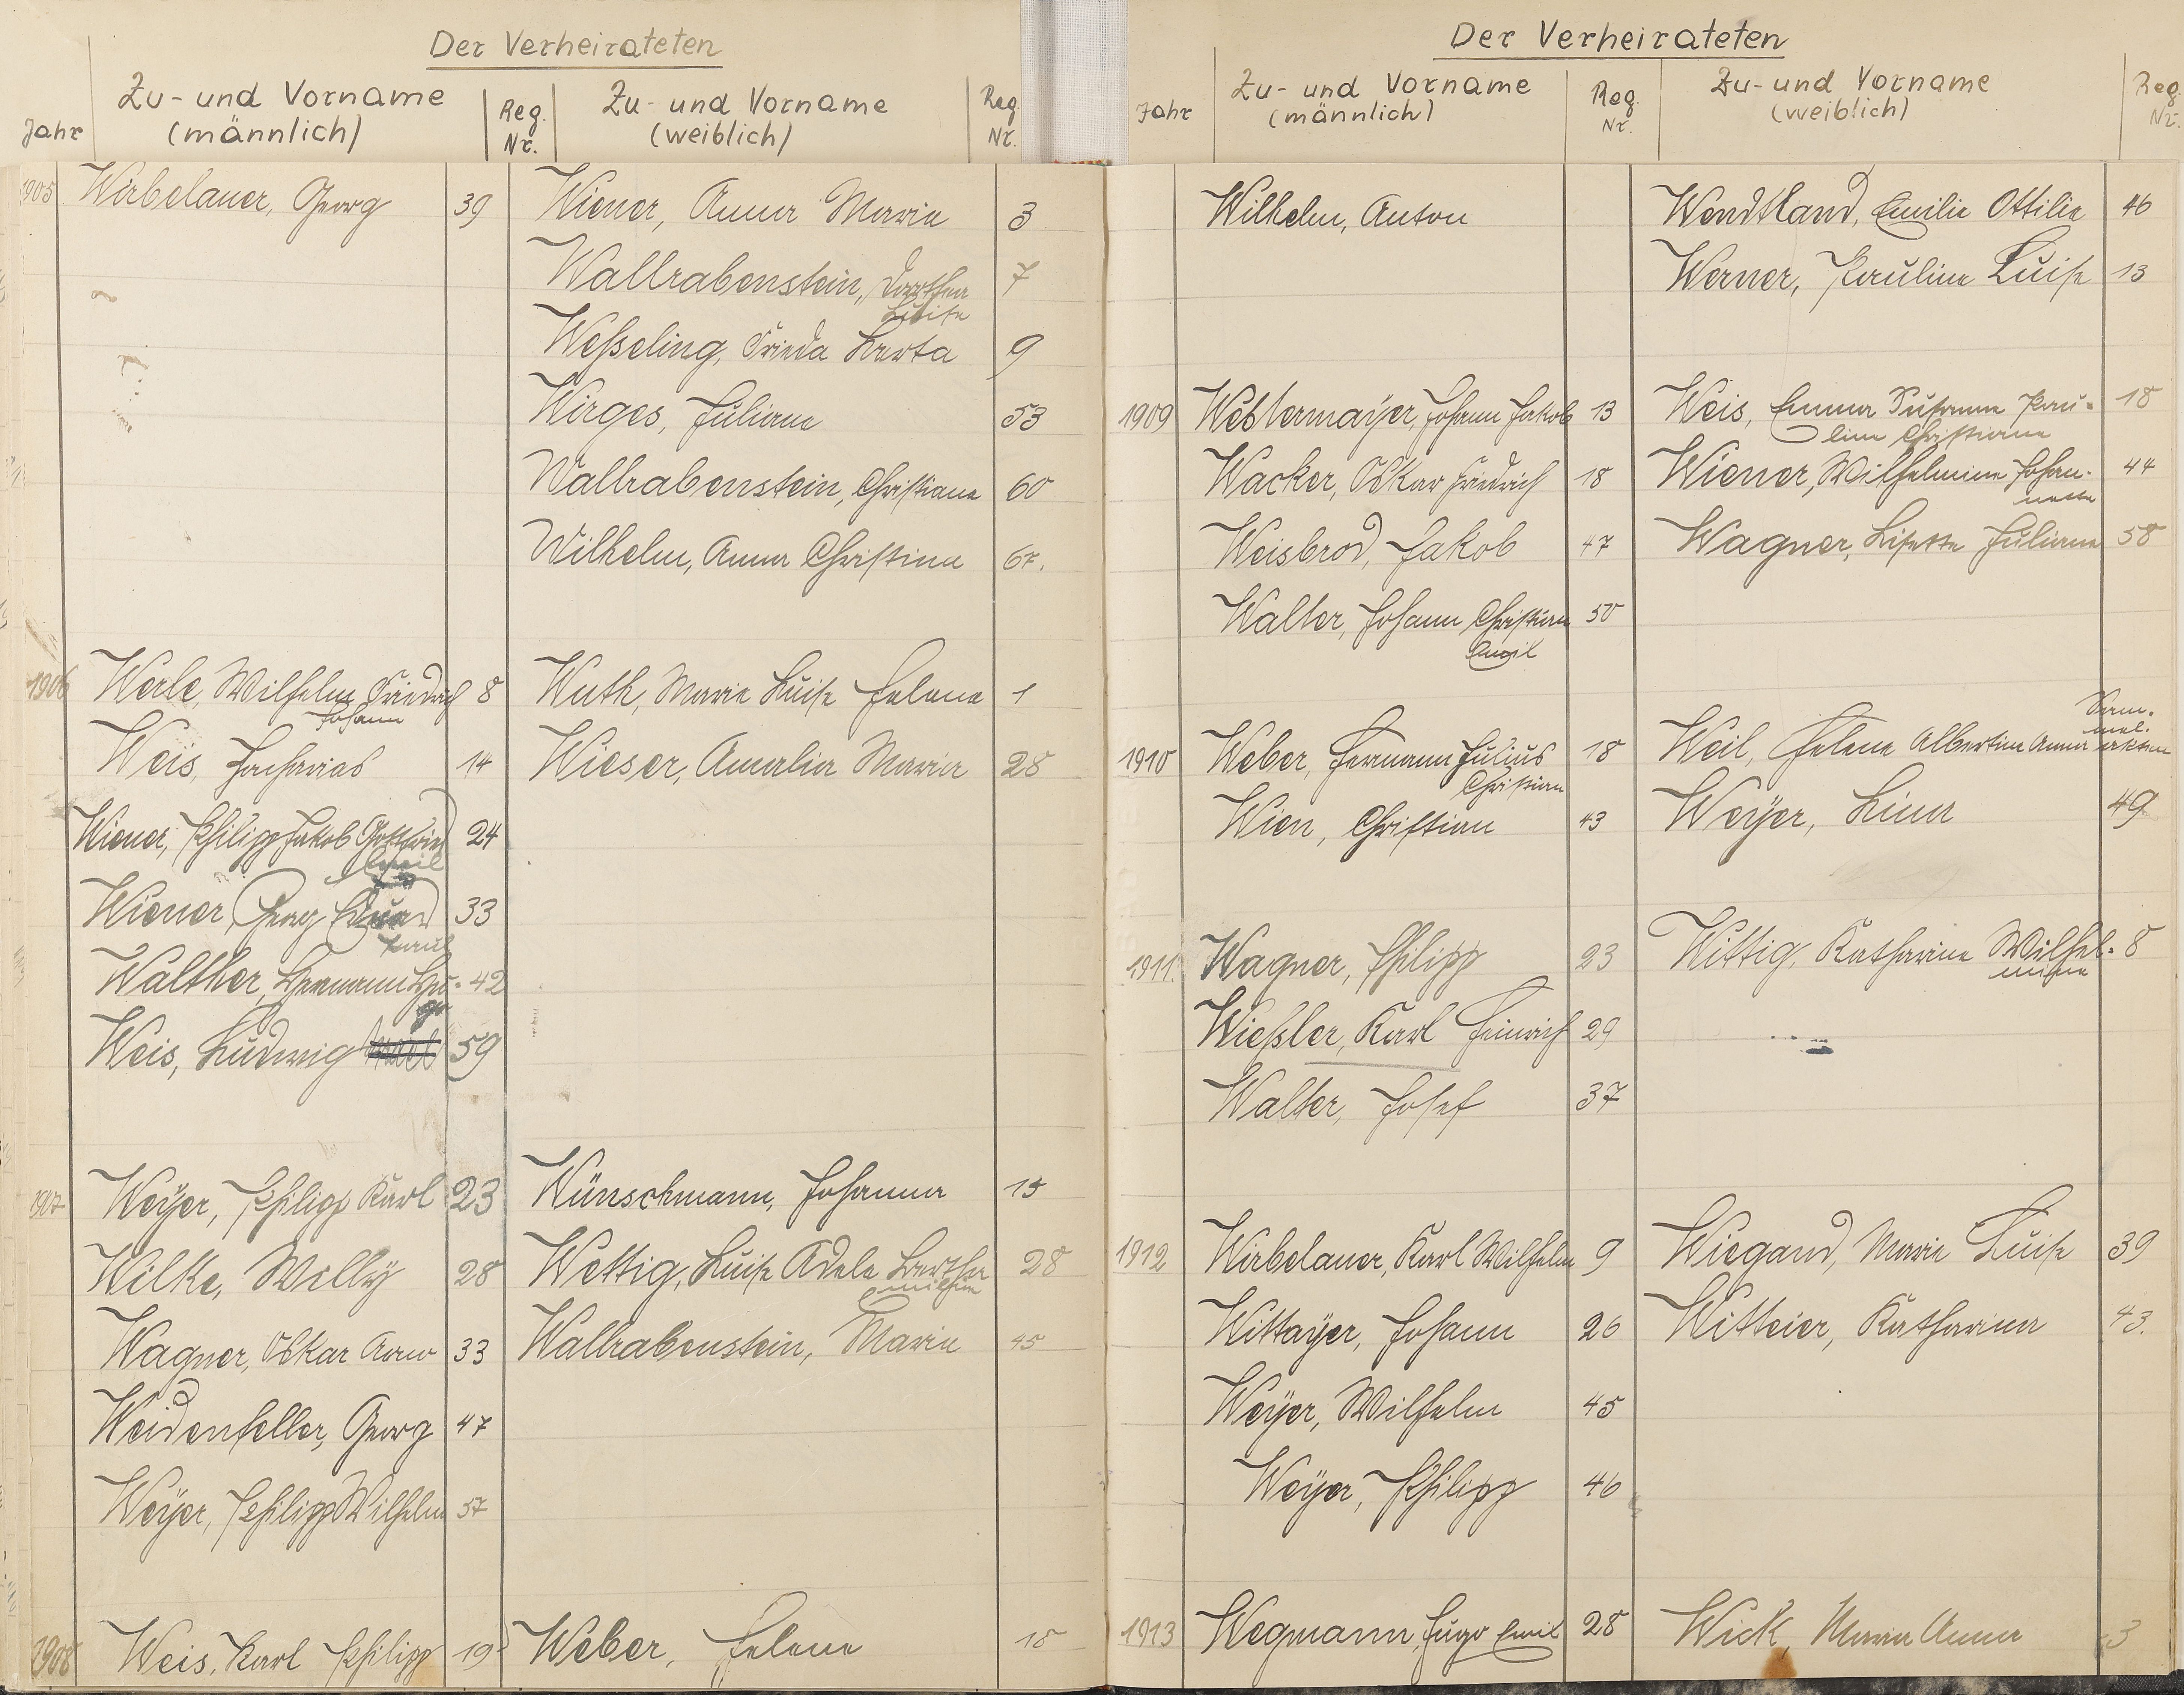 Der Verheirateten
Jahr Zu- und Vorname (männlich) Reg. Nr. Zu- und Vorname (weiblich) Reg. Nr.
1905 Wirbelauer, Georg 39 Wiener, Anna Maria 3
Wallrabenstein, Dorothea 7
Luise
Weßeling, Frieda Berta 9
Wirges, Juliane 53
Wallrabenstein, Christiane 60
Wilhelm, Anna Christina 67.
1906 Werle, Wilhelm Friedrich 8 Wuth, Marie Luise Helene 1
Johann
Weis, Zacharias 14 Wieser, Amalia Maria 28
Wiener, Philipp Jakob Gottfried 24
Emil
Wiener, Georg Eduard 33
Walther, Hermann Hu- 42
go
Weis, Ludwig 59
1907 Weÿer, Philipp Karl 23 Wünschmann, Johanna 15
Wilke, Willÿ 28 Wettig, Luise Adele Bertha 28
Wagner, Oskar Arno 33 Wallrabenstein, Marie 45
Weidenfeller, Georg 47
Weÿer, Philipp Wilhelm 57
1908 Weis, Karl Philipp 19 Weber, Helene 18
Der Verheirateten
Jahr Zu- und Vorname (männlich) Reg. Nr. Zu- und Vorname (weiblich) Reg. Nr.
Wilhelm, Anton Wendtland, Emilie Ottilie 46
Werner, Pauline Luise 13
1909 Westermaÿer, Johann Jakob 13 Weis, Emma Susanna Pau- 18
line Christiane
Wacker, Oskar Friedrich 18 Wiener, Wilhelmine Johan- 44
nette
Weisbrod, Jakob 47 Wagner, Lisette Juliane 58
Walter, Johann Christian 50
Emil
1910 Weber, Hermann Julius 18 Weil, Helene Albertine Anna Sam-
mel-
akten
Christian
Wien, Christian 43 Weÿer, Lina 49
1911. Wagner, Philipp 23 Wittig, Katharine Wilhel- 8
mine
Wießler, Karl Heinrich 29
Walter, Josef 37
1912 Wirbelauer, Karl Wilhelm 9 Wiegand, Marie Luise 39
Wittaÿer, Johann 26 Witteier, Katharina 43.
Weÿer, Wilhelm 45
Weÿer, Philipp 46
1913 Wegmann, Hugo Emil 28 Wick, Maria Anna 3